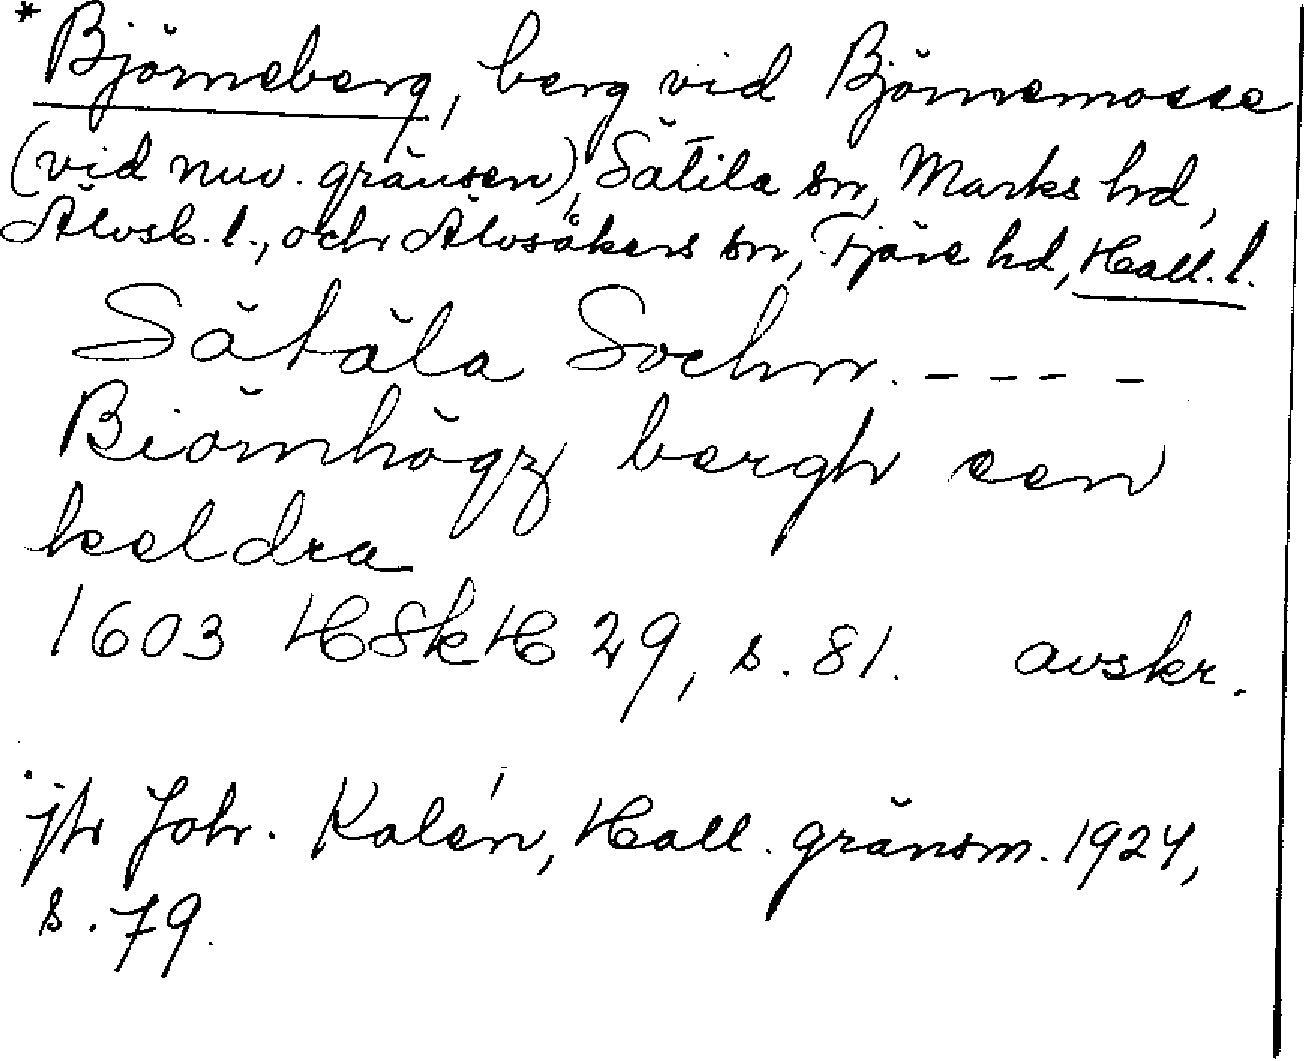 *Björneberg, berg vid Björnemosse
(vid nuv. gränsen), Sätila sn, Marks hd,
Älvsb. l., och Älvsåkers sn, Fjäre hd, Hall. l.
Sätäla Sochnn. - - - -
Biörnhögz bergh een
keeldra
1603 HSkH 29, s. 81. avskr.
jfr Joh. Kalén, Hall. gränsm. 1924,
s. 79.